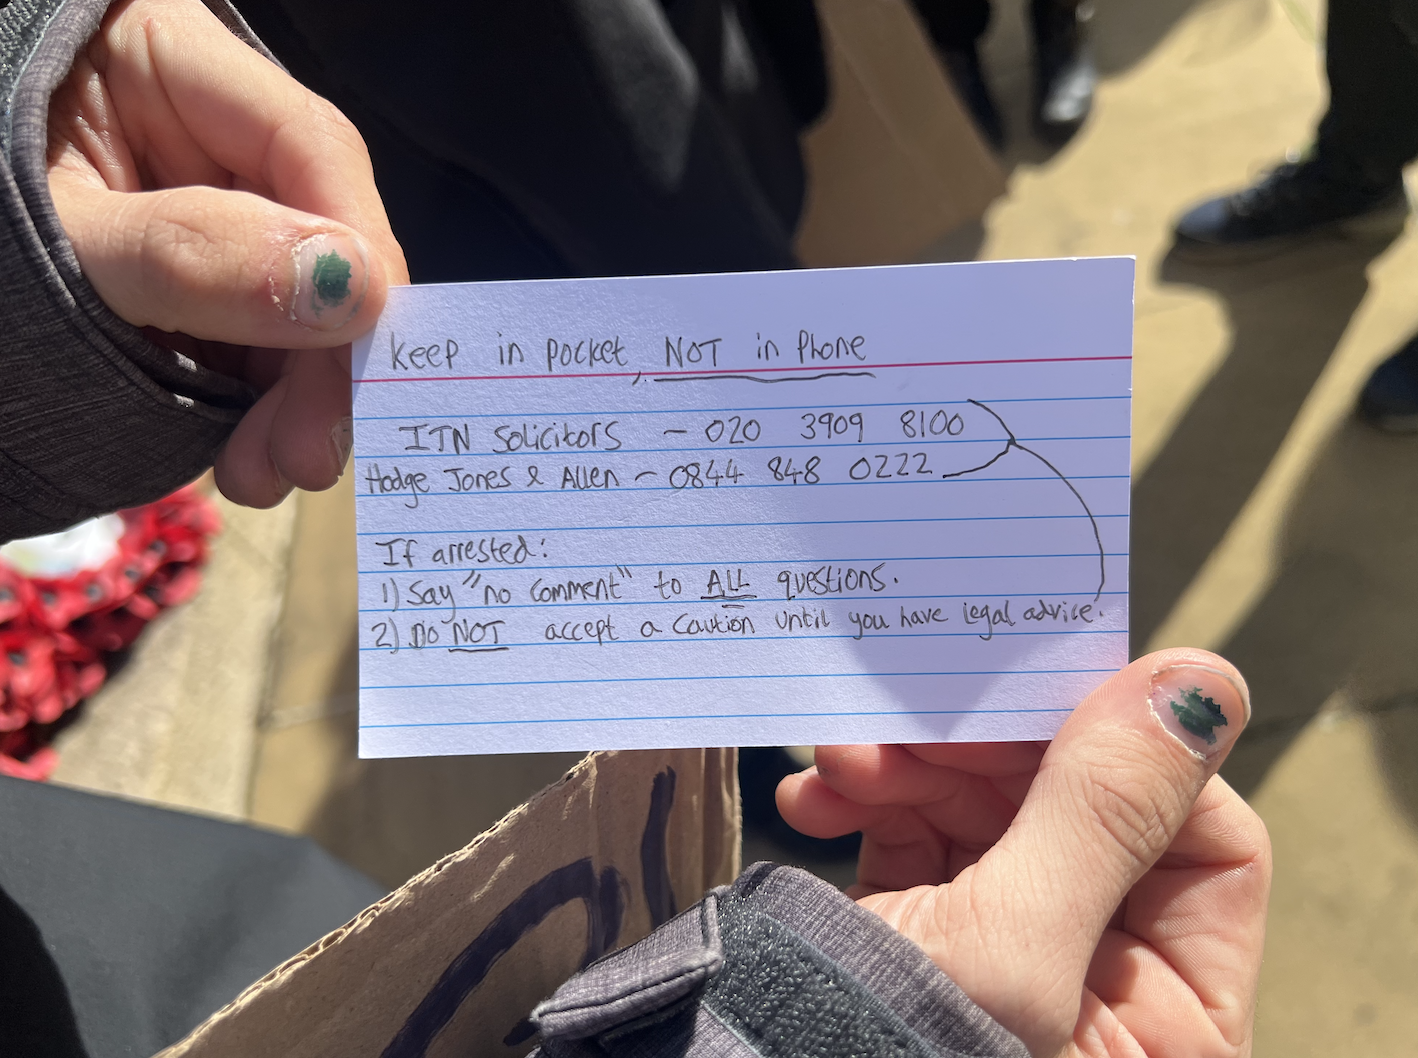 Keep in pocket, NOT in Phone
ITN Solicitors – 020 3909 8100
Hodge Jones & Allen – 0844 848 0222
If arrested:
1) Say "no comment" to ALL questions.
2) Do NOT accept a caution until you have legal advice.